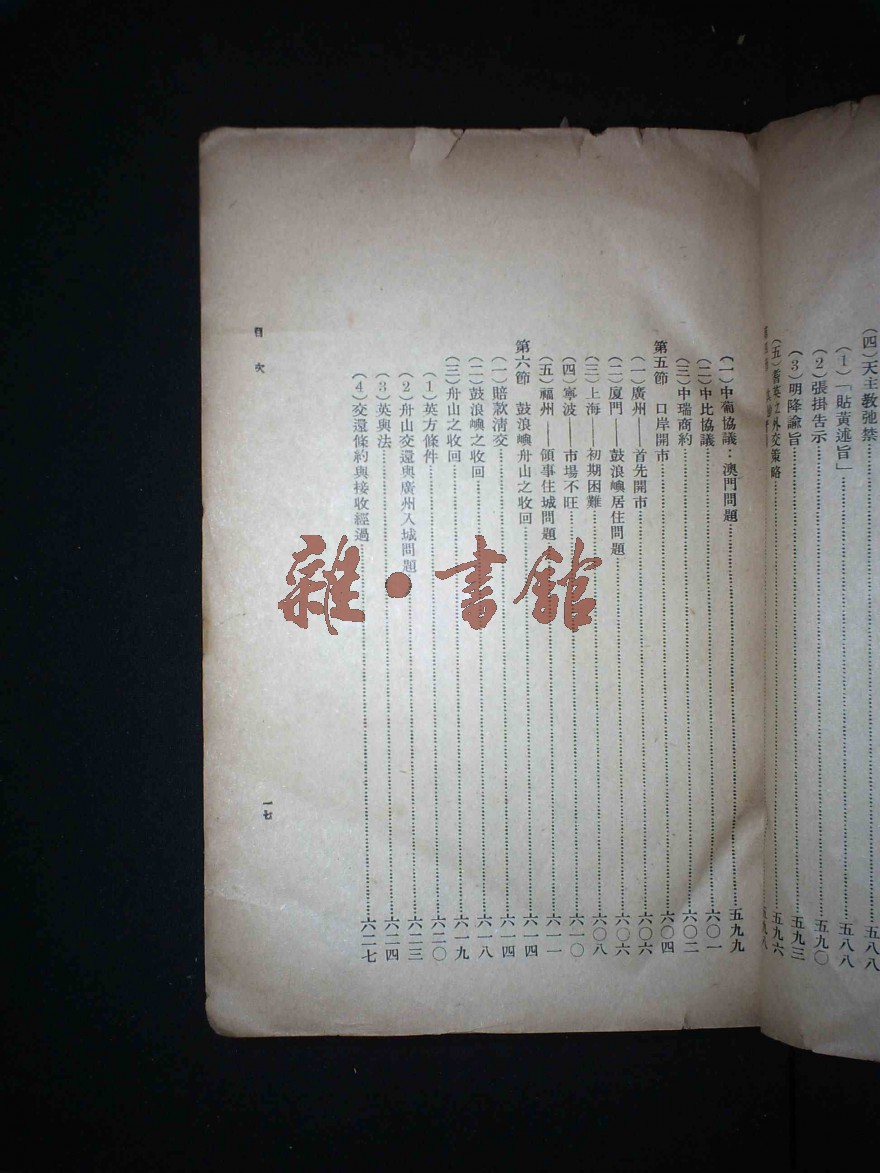 (四)天主教弛禁……五八八
(1)「貼黃述旨」……五八八
(2)張掛告示……五九〇
(3)明降諭旨……五九三
(五)耆英之外交策略……五九六
五九八
(一)中葡協議:澳門問題……五九九
(二)中比協議……六〇一
(三)中瑞商約……六〇二
第五節 口岸開市……六〇四
(一)廣州——首先開市……六〇六
(二)廈門——鼓浪嶼居住問題……六〇六
(三)上海——初期困難……六〇八
(四)寧波——市場不旺……六一〇
(五)福州——領事住城問題……六一一
第六節 鼓浪嶼舟山之收回……六一四
(一)賠款清交……六一四
(二)鼓浪嶼之收回……六一八
(三)舟山之收回……六一九
(1)英方條件……六二〇
(2)舟山交還與廣州入城問題……六二三
(3)英與法……六二四
(4)交還條約與接收經過……六二七
目次
一七
雜·書館